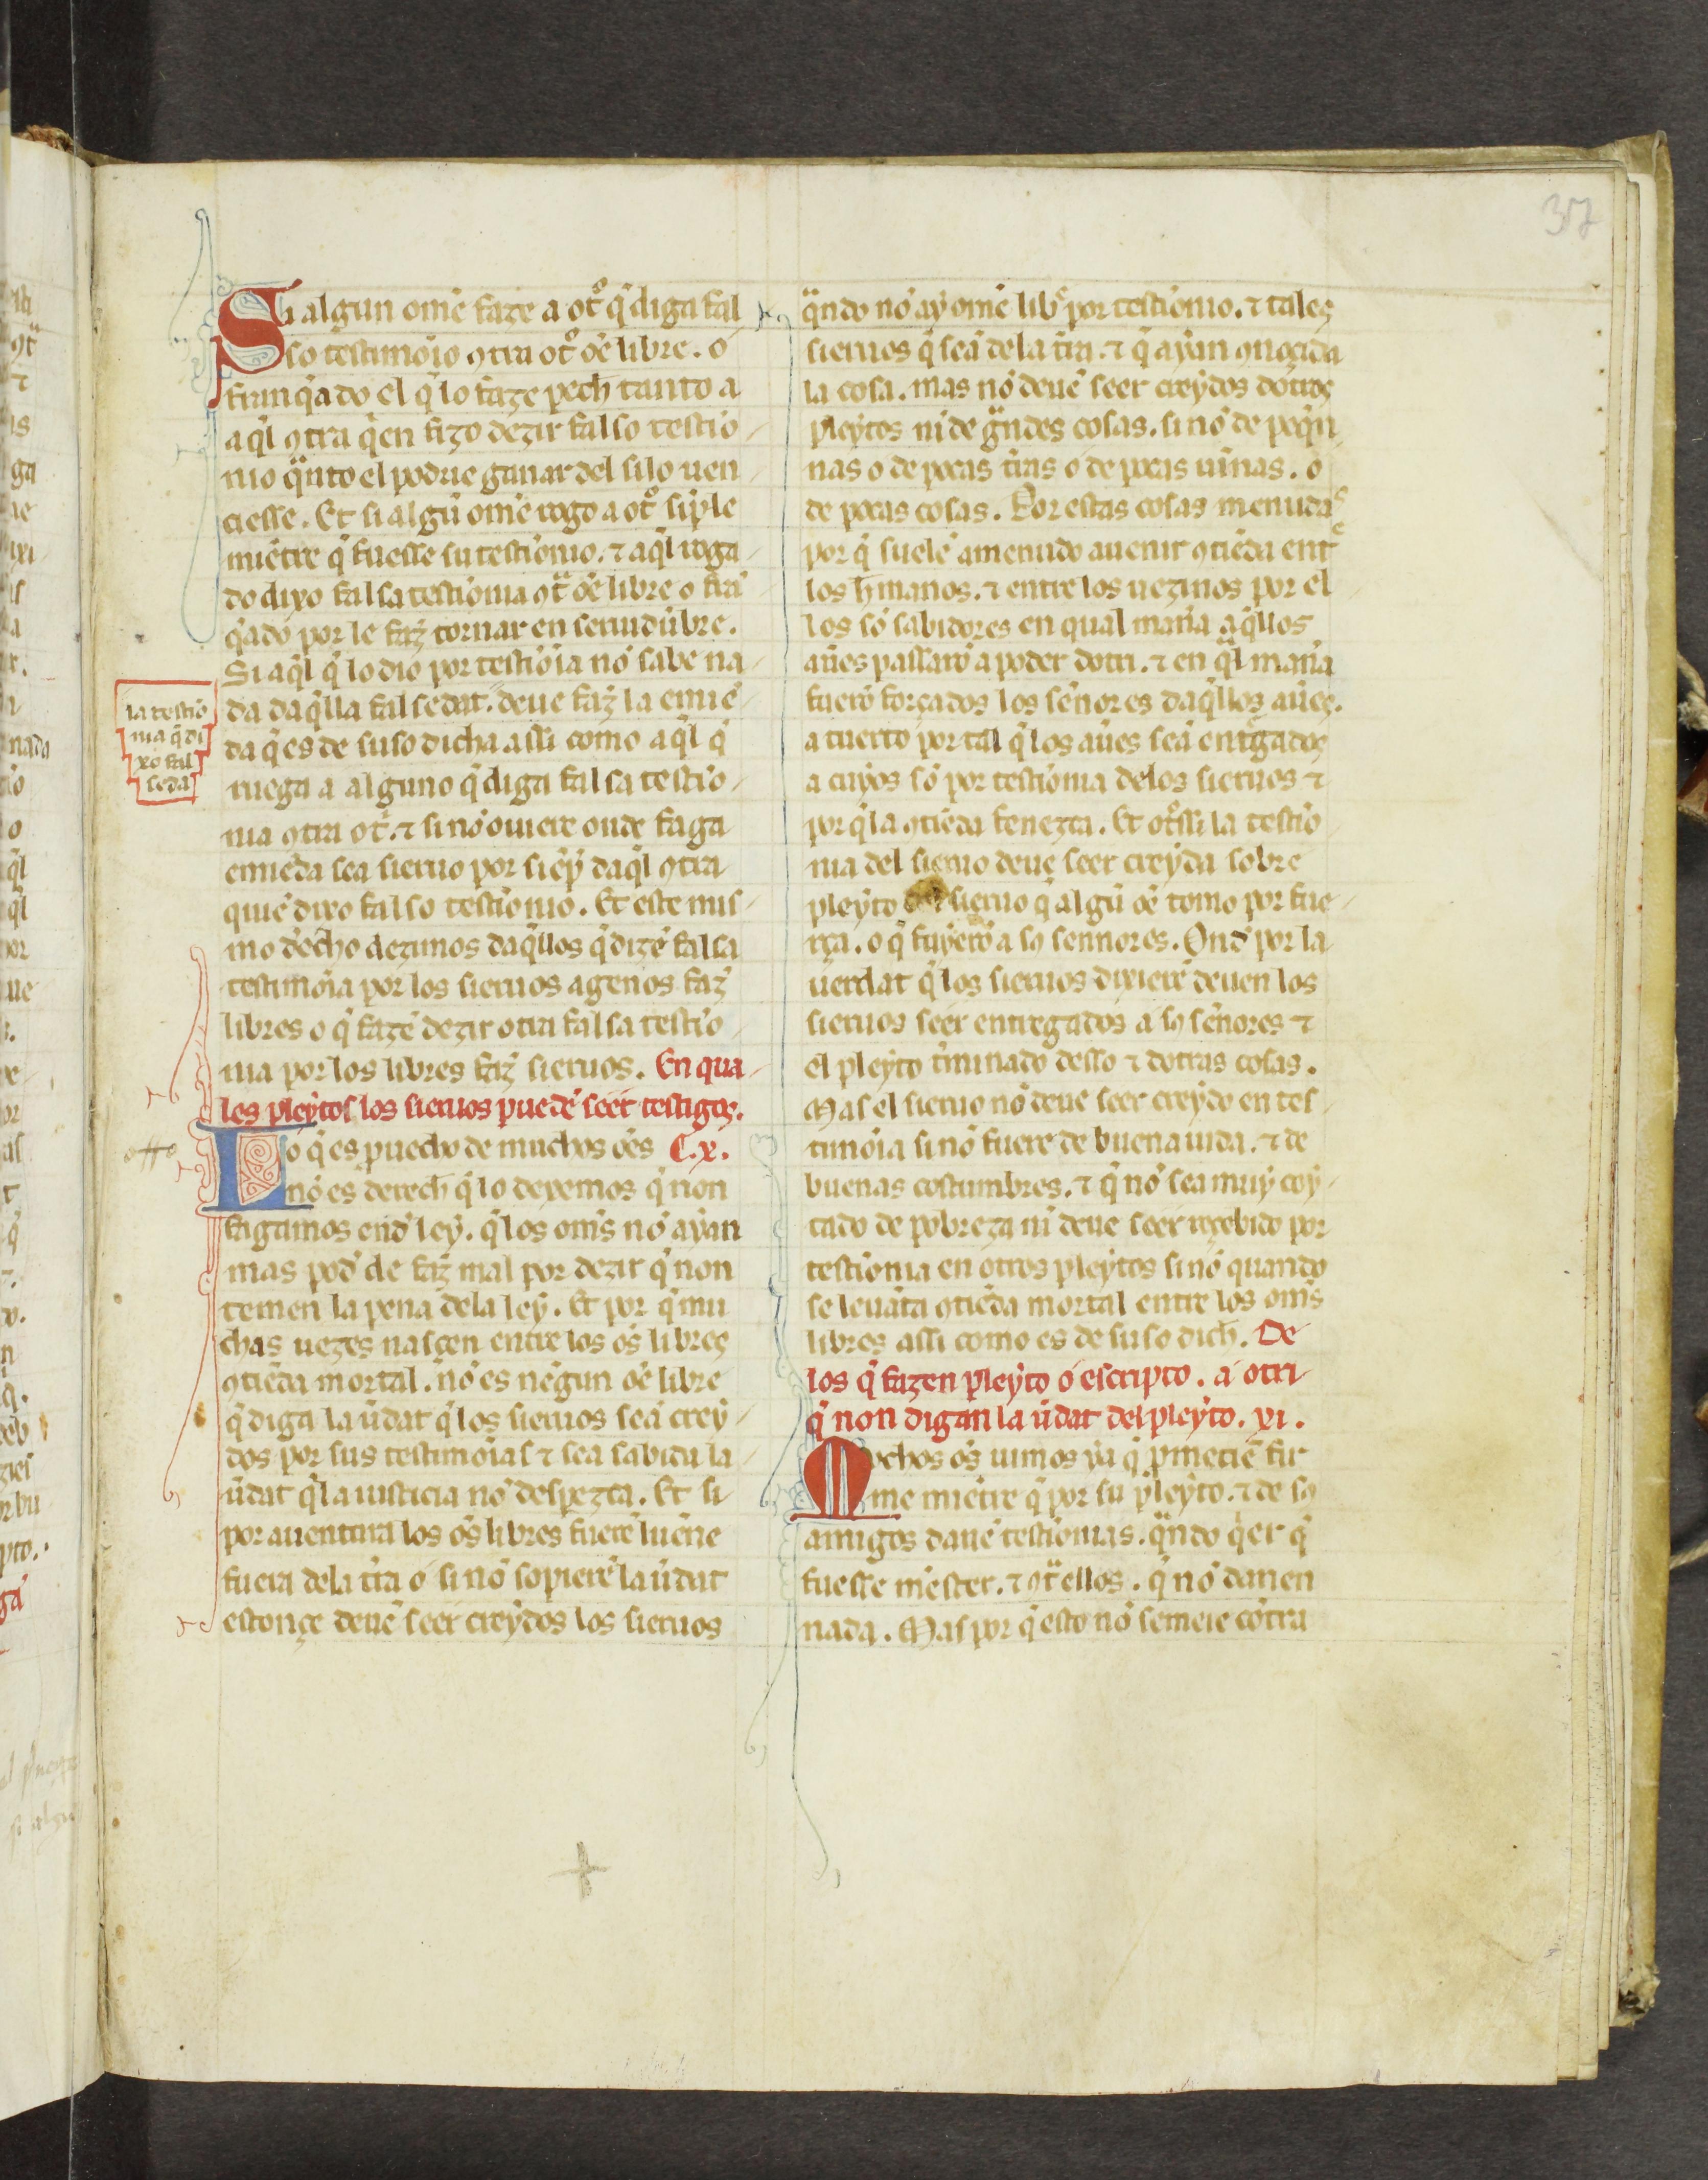 37
Si algun ome faze a otº q̃ diga fal
so testimoio ꝯtra otº oẽ libre. o
franq̃ado el q̃ lo faze pech tanto a
aq̃l ꝯtra q̃en fizo dezir falso testio
nio q̃nto el podrie ganar del si lo uen
ciesse. Et si algũ ome rogo a otº siple
miẽtre q̃ fuesse su testionio. ⁊ aq̃l roga
do dixo falsa testionia ꝯtª oẽ libre o frã
q̃ado por le faz̃ tornar en seruidũbre.
Si aq̃l q̃ lo dio por testioĩa nõ sabe na
la testiõ
nia q̃ di
xo fal
seda
da daq̃lla falsedat. deue faz̃ la emiẽ
da q̃ es de suso dicha assi como aq̃l q̃
ruega a alguno q̃ diga falsa testio
nia ꝯtra otº. ⁊ si nõ ouiere onde faga
emiẽda sea sieruo por siẽp̃ daq̃l ꝯtra
quiẽ dixo falso testionio. Et este mis
mo decho dezimos daq̃llos q̃ dizẽ falsa
testimoĩa por los sieruos agenos faz̃
libres o q̃ fazẽ dezir otra falsa testio
nia por los libres faz̃ sieruos. En qua
les pleytos los sieruos puedẽ seer testigos.
Lo q̃ es puecho de muchos oẽs C. x.
nõ es derech q̃ lo dexemos q̃ non
fagamos end ley. q̃ los om̃s nõ ayan
mas pod̃ de faz̃ mal por dezir q̃ non
temen la pena dela ley. Et por q̃ mu
chas uezes nasçen entre los oñs libres
ꝯtiẽda mortal. nõ es nẽgun oẽ libre
q̃ diga la ũdat q̃ los sieruos seã crey
dos por sus testimoĩas ⁊ sea sabida la
ũdat q̃ la iusticia nõ despezca. Et si
por auentura los oñs libres fuerẽ luẽne
fuera dela tr̃ra o si nõ sopierẽ la ũdat
estonçe deuẽ seer creydos los sieruos
q̃ndo nõ ay ome libº por testionio. ⁊ tales
sieruos q̃ seã de la tr̃ra. ⁊ q̃ ayan ꝯnoçida
la cosa. mas nõ deuẽ seer creydos dotros
pleytos ni de gñdes cosas. si nõ de peq̃n
nas o de pocas tr̃ras o de pocas uiñas. o
de pocas cosas. Por estas cosas menudas
por q̃ suelẽ amenudo auenir ꝯtiẽda entº
los hmanos. ⁊ entre los uezinos por el
los sõ sabidores en qual mañia aq̃llos
aũes passarõ a poder dotri. ⁊ en q̃l mañia
fuerõ forçados los señores daq̃llos aũes.
a tuerto por tal q̃ los aũes seã entgados
a cuyos sõ por testionia delos sieruos ⁊
por q̃ la ꝯtiẽda fenezca. Et otºssi la testio
nia del sieruo deue seer creyda sobre
pleyto del sieruo q̃ algũ oẽ tomo por fue
rça. o q̃ fuyerõ a so sennores. Ond por la
uerdat q̃ los sieruos dixierẽ deuen los
sieruos seer entregados a so señores ⁊
el pleyto t̃minado desso ⁊ dotras cosas.
Mas el sieruo nõ deue seer creydo en tes
timoĩa si nõ fuere de buena uida. ⁊ de
buenas costumbres. ⁊ q̃ nõ sea muy coy
tado de pobreza ni deue seer reçebido por
testionia en otros pleytos si nõ quando
se leuãta ꝯtiẽda mortal entre los om̃s
libres assi como es de suso dich. De
los q̃ fazen pleyto o escripto. a otri
q̃ non digan la ũdat del pleyto. xi.
Mochos oñs uimos ya q̃ pmetiẽ fir
me miẽtre q̃ por su pleyto. ⁊ de so
amigos dariẽ testionias. q̃ndo q̃er q̃
fuesse mẽster. ⁊ ꝯtª ellos. q̃ nõ darien
nada. Mas por q̃ esto nõ semeie cõtra